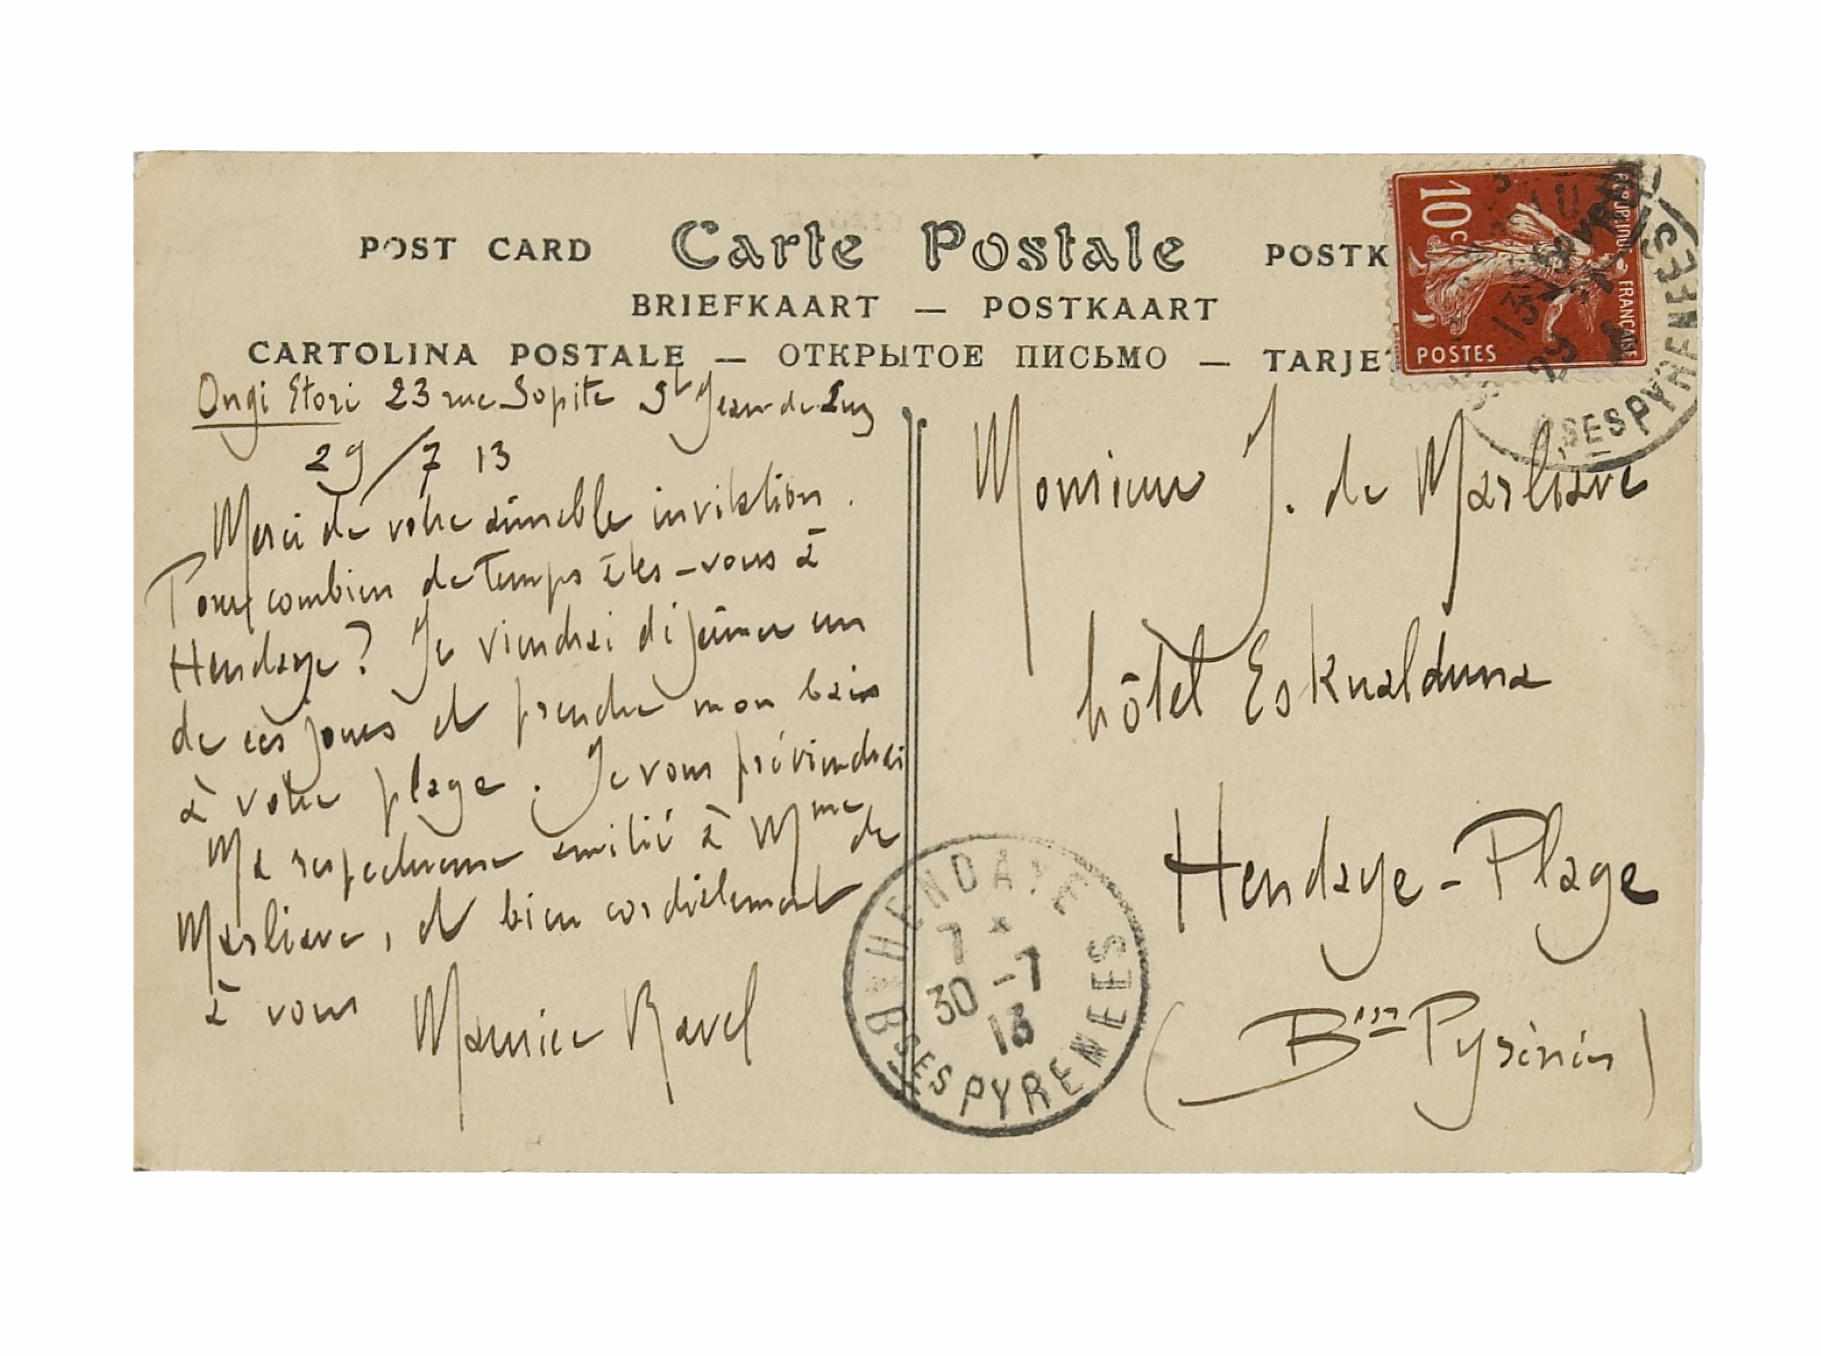 POST CARD Carte Postale POSTK
BRIEFKAART — POSTKAART
CARTOLINA POSTALE — ОТКРЫТОЕ ПИСЬМО — TARJE
10c
REPUBLIQUE FRANÇAISE
POSTES
13
29
SES PYRENEES
Ongi Etori 23 rue Sopite St Jean-de-Luz
29/7 13
Merci de votre aimable invitation.
Pour combien de temps êtes-vous à
Hendaye? Je viendrai déjeûner un
de ces jours et prendre mon bain
à votre plage. Je vous préviendrai
Ma respectueuse amitié à Mme de
Marliave, et bien cordialement
à vous Maurice Ravel
Monsieur J. de Marliave
hôtel Eskualduna
Hendaye-Plage
(Bses Pyrénées)
HENDAYE
7 *
30 -7
13
BSES PYRENEES